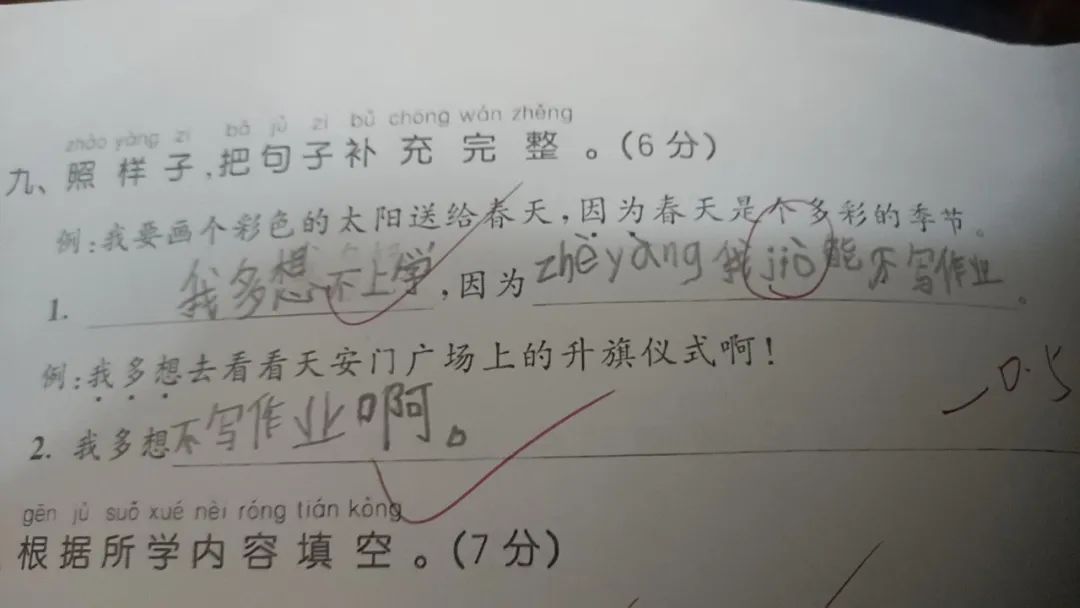 zhào yàng zi bǎ jù zi bǔ chōng wán zhěng
九、照样子,把句子补充完整。(6分)
例:我要画个彩色的太阳送给春天,因为春天是个多彩的季节。
1. 我多想不上学,因为zhèyàng我jiò能不写作业。
例:我多想去看看天安门广场上的升旗仪式啊!
0.5
2. 我多想不写作业啊。
gēn jù suǒ xué nèi róng tián kòng
根据所学内容填空。(7分)